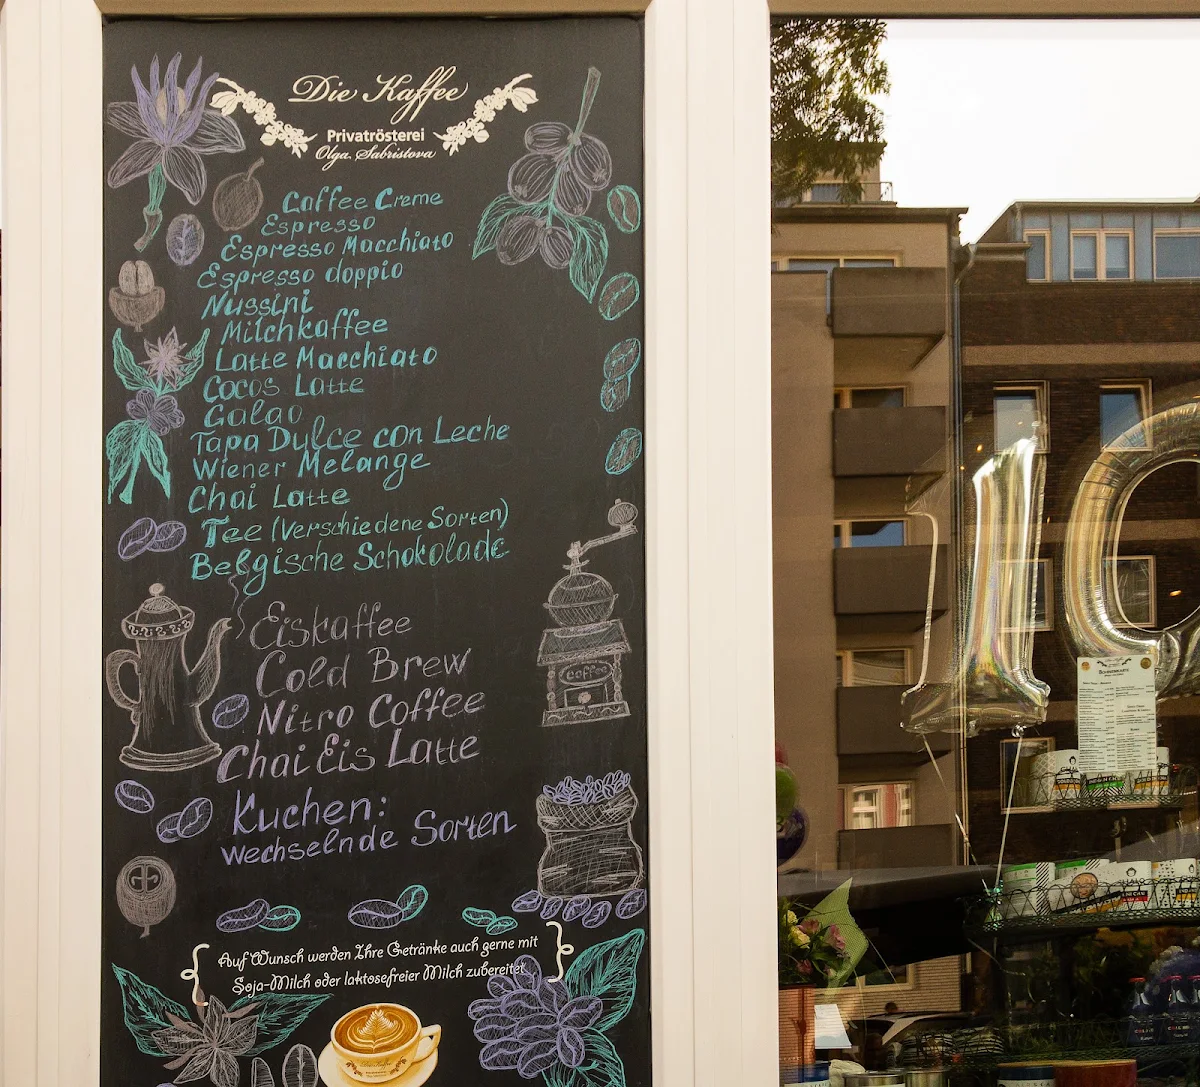 Die Kaffee
Privatrösterei
Olga Sabristova
Caffee Creme
Espresso
Espresso Macchiato
Espresso doppio
Nussini
Milchkaffee
Latte Macchiato
Cocos Latte
Galao
Tapa Dulce con Leche
Wiener Melange
Chai Latte
Tee (Verschiedene Sorten)
Belgische Schokolade
Eiskaffee
Cold Brew
Nitro Coffee
Chai Eis Latte
coffee
Kuchen:
wechselnde Sorten
Auf Wunsch werden Ihre Getränke auch gerne mit
Soja-Milch oder laktosefreier Milch zubereitet
10